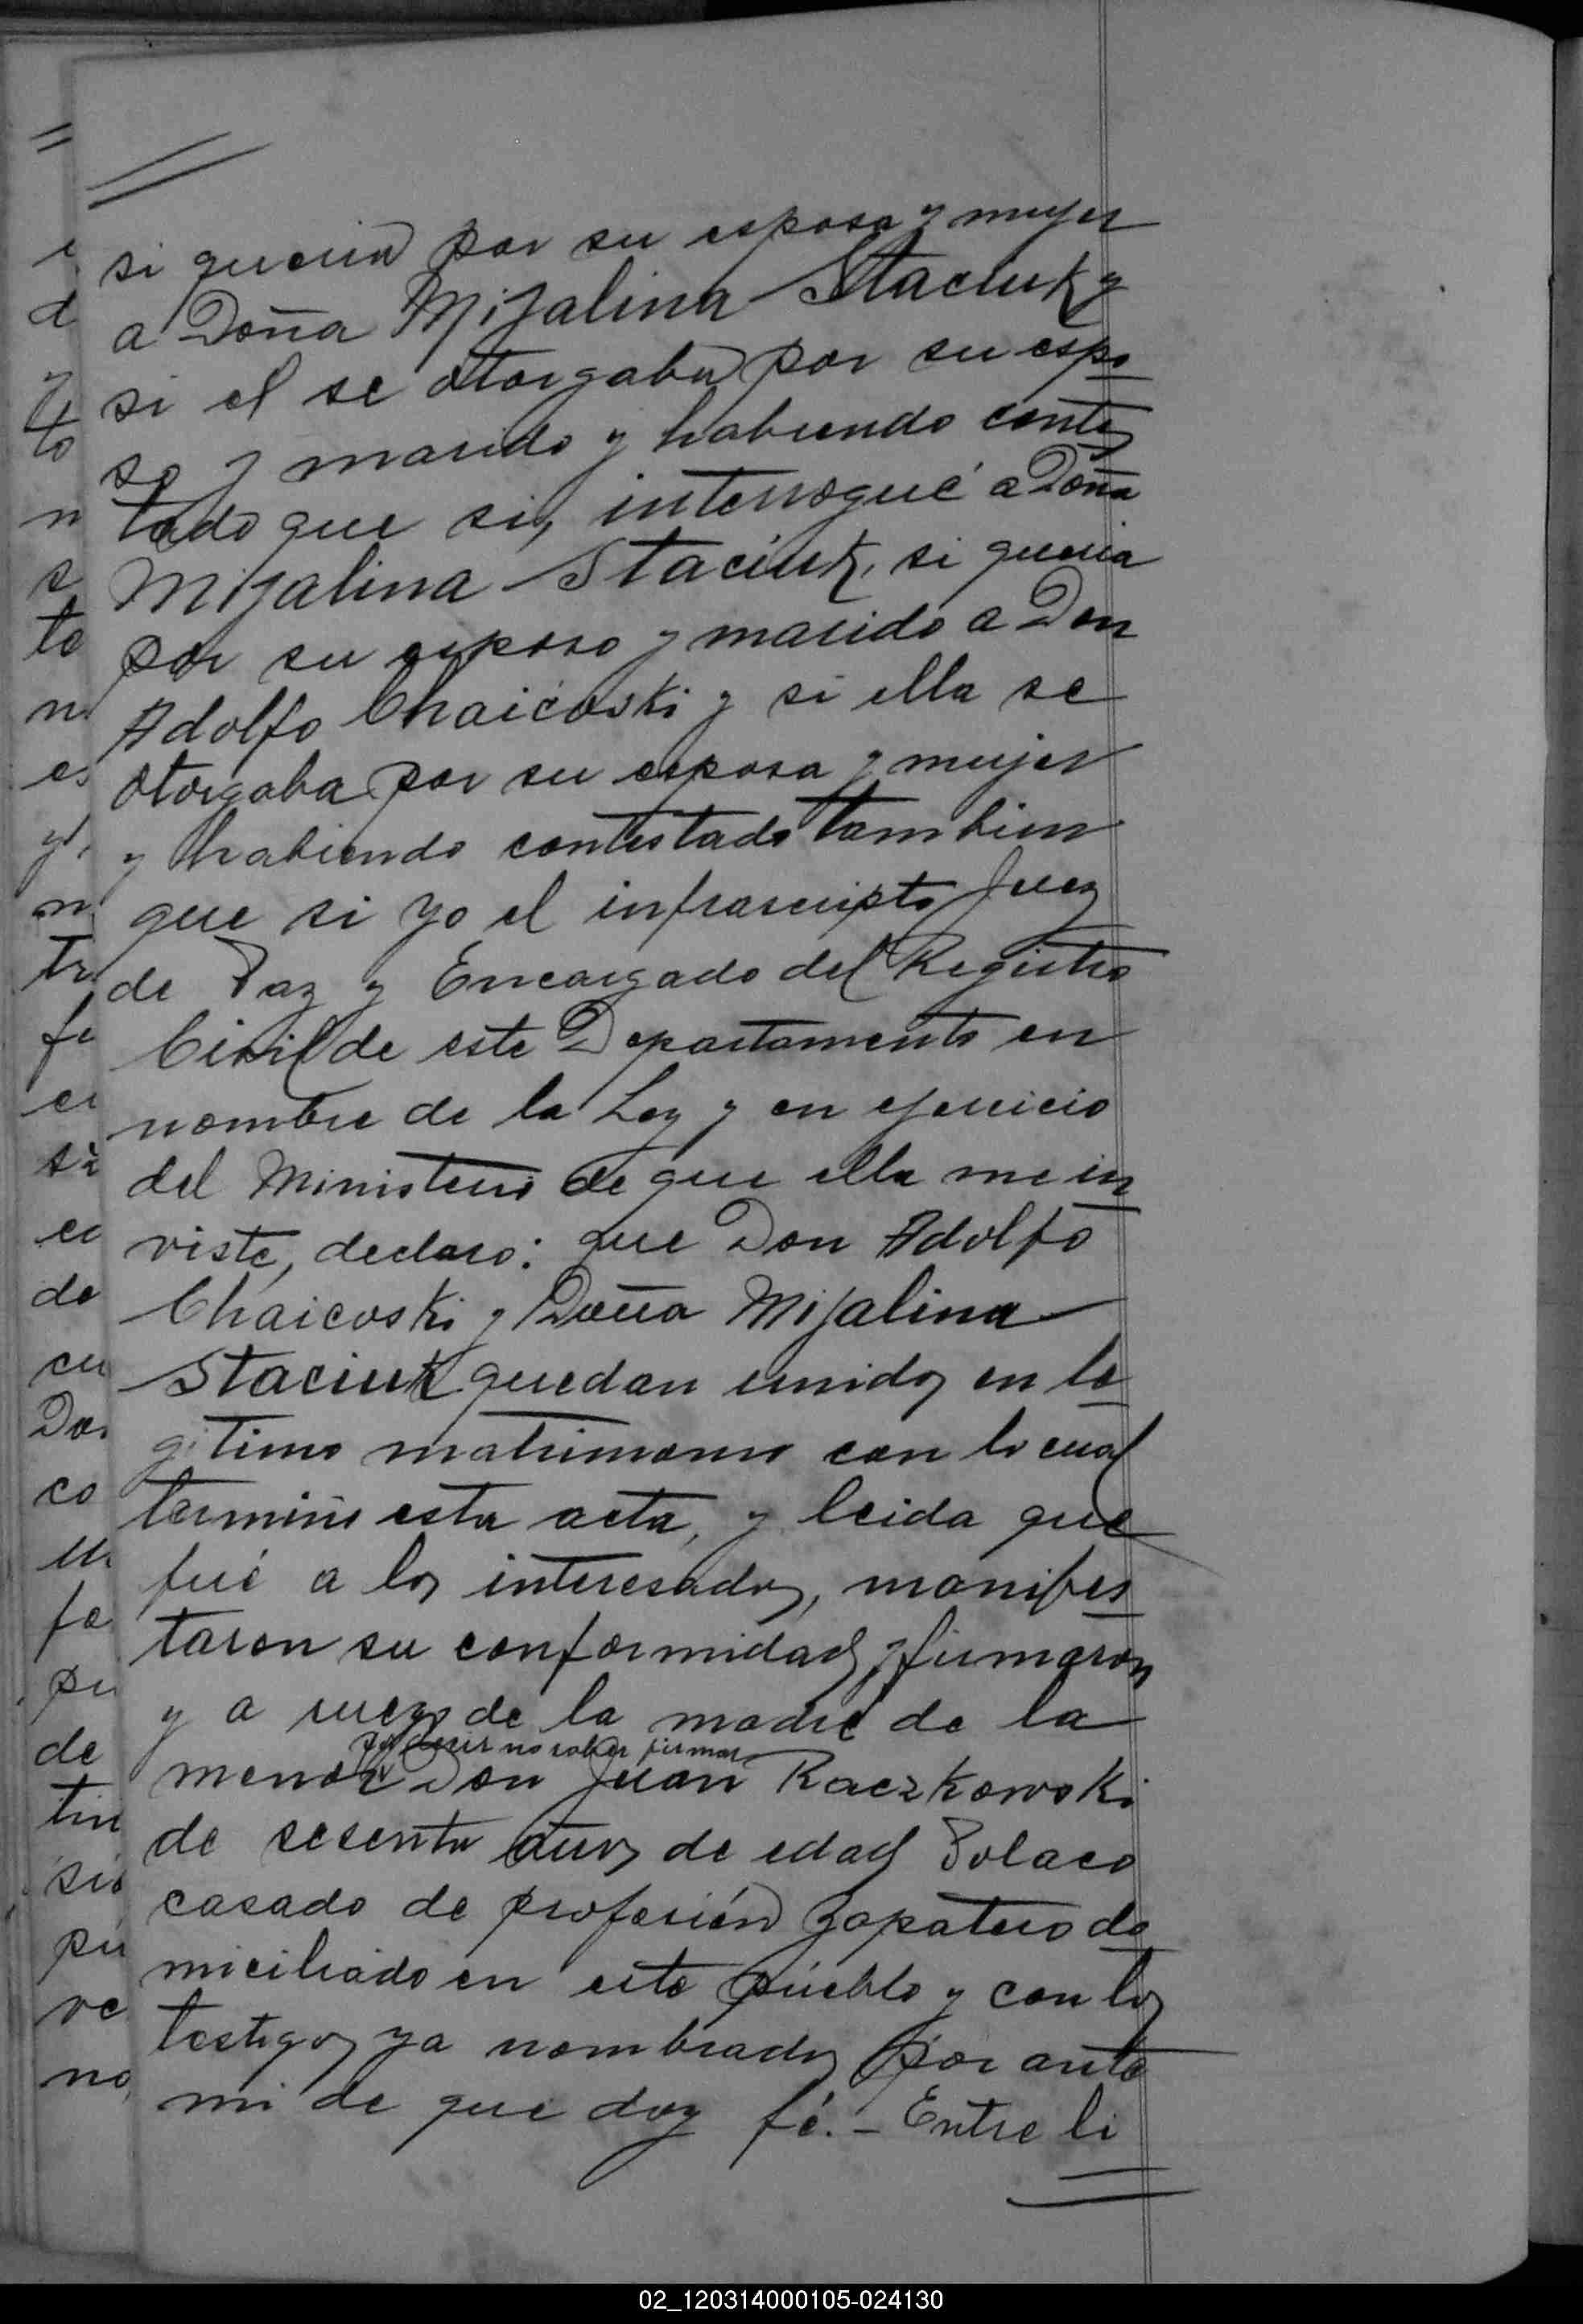 si queria por su esposa y mujer
a Doña Mijalina Staciuk y
si el se otorgaba por su espo
so y marido y habiendo contes
tado que si, interrogué a Doña
Mijalina Staciuk, si queria
por su esposo y marido a Don
Adolfo Chaicoski y si ella se
otorgaba por su esposa y mujer
y habiendo contestado tambien
que si yo el infrascripto Juez
de Paz y Encargado del Registro
Civil de este Departamento en
nombre de la Ley y en ejercicio
del Ministerio de que ella me in
viste, declaro: que Don Adolfo
Chaicoski y Doña Mijalina
Staciuk quedan unidos en le
gitimo matrimonio con lo cual
terminó esta acta, y leida que
fué a los interesados, manifes
taron su conformidad y firmaron
y a ruego de la madre de la
por decir no saber firmar
menor Don Juan Raczkowski
de sesenta años de edad Polaco
casado de profesión Zapatero do
miciliado en este pueblo y con los
testigos ya nombrados por ante
mi de que doy fé. - Entre li
02_120314000105-024130